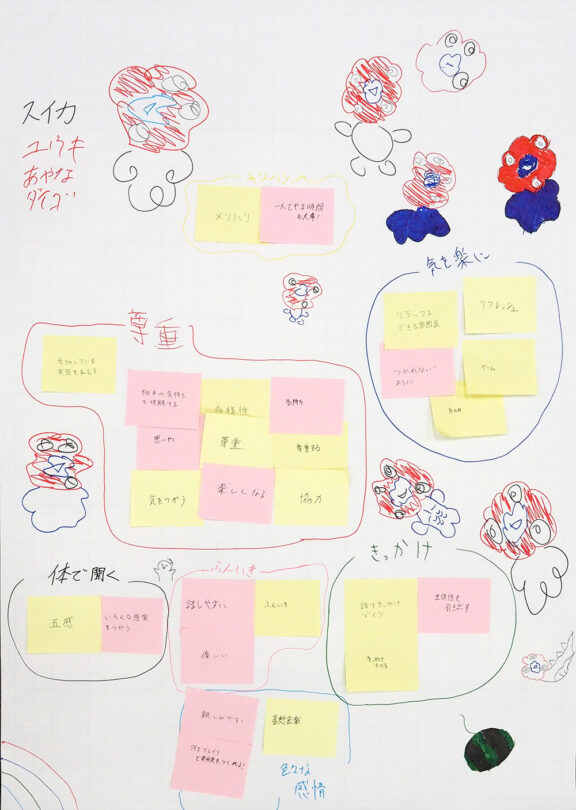 スイカ
ユウキ
あやな
ダイゴ
メリハリ
メリハリ
一人でやる時間
も大事!
気を楽に
リラックス
できる雰囲気
リフレッシュ
つかれない
ように
ゲーム
尊重
参加している
実感を与える
相手の気持ち
を理解する
多様性
気持ち
思いやり
尊重
尊重する
気をつかう
楽しくなる
協力
体で聞く
五感
いろんな感覚
をつかう
ふんいき
話しやすい
ふんいき
優しい
きっかけ
話すきっかけ
づくり
主体性を
引き出す
きっかけ
親しみやすい
喜怒哀楽
色々な
感情